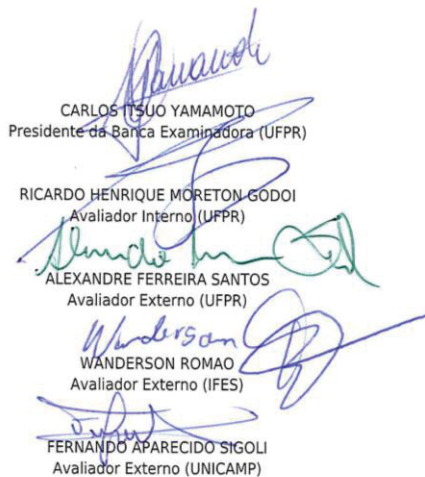 CARLOS ITSUO YAMAMOTO
Presidente da Banca Examinadora (UFPR)
RICARDO HENRIQUE MORETON GODOI
Avaliador Interno (UFPR)
ALEXANDRE FERREIRA SANTOS
Avaliador Externo (UFPR)
Wanderson
WANDERSON ROMAO
Avaliador Externo (IFES)
FERNANDO APARECIDO SIGOLI
Avaliador Externo (UNICAMP)